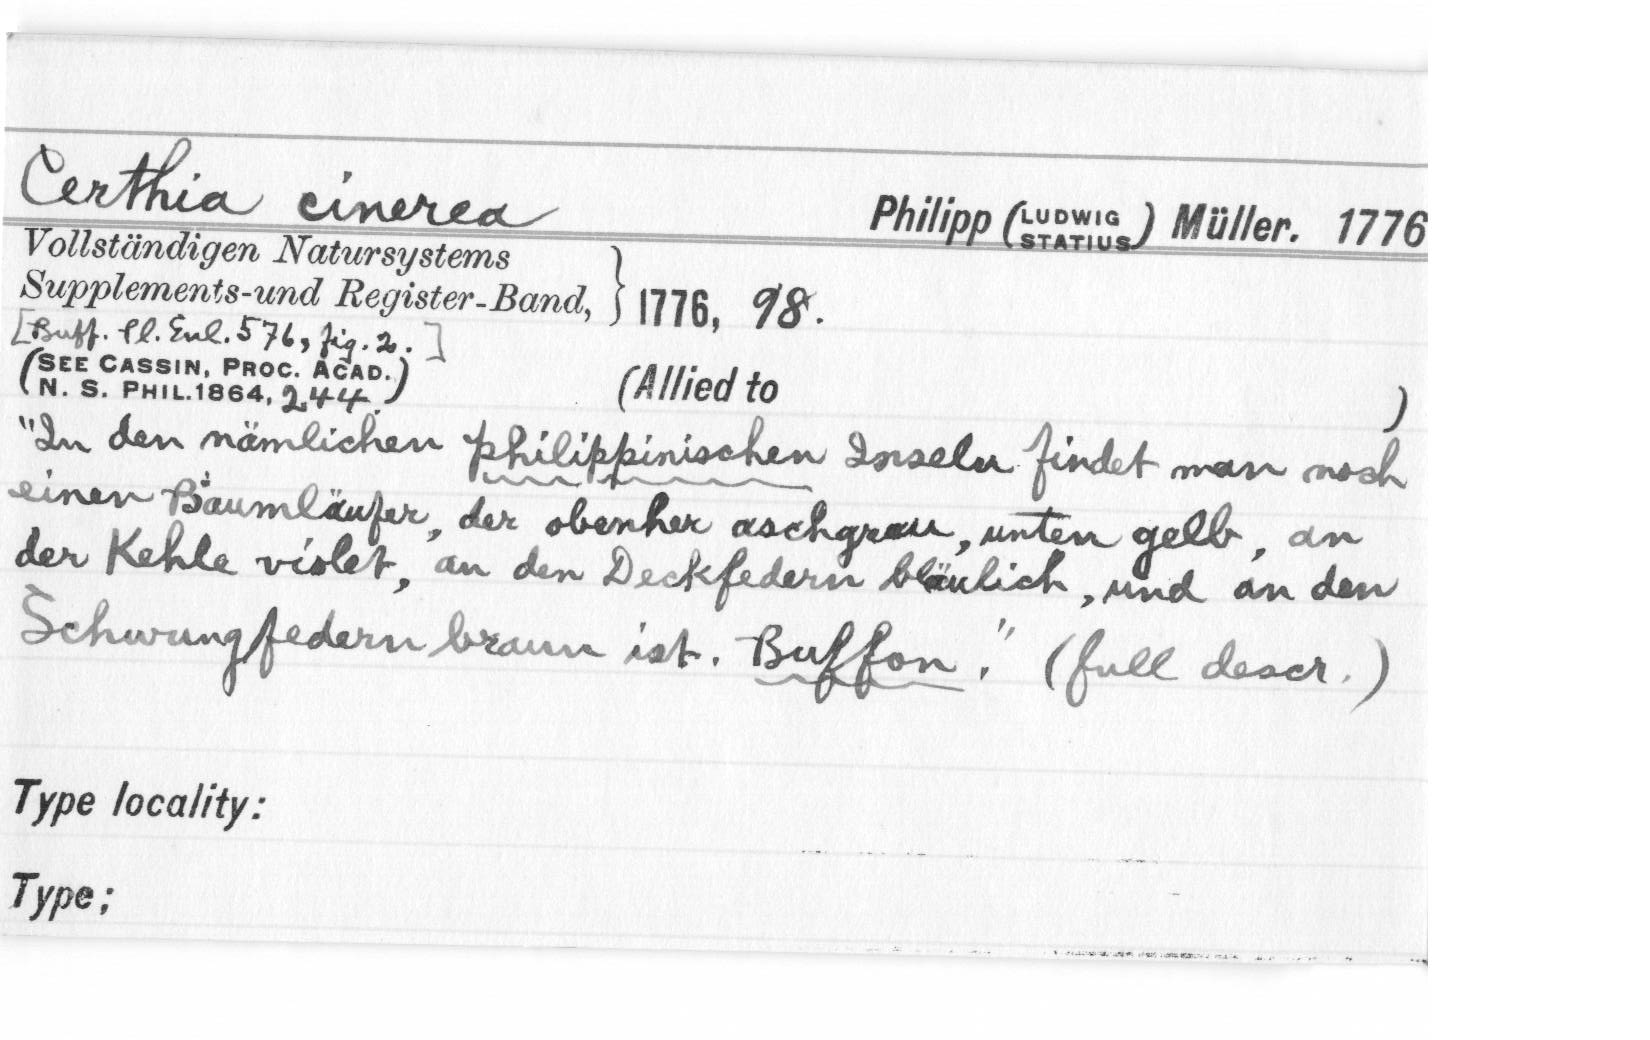 Certhia cinerea Philipp (LUDWIG STATIUS) Müller. 1776
Vollständigen Natursystems
Supplements-und Register-Band, } 1776, 98.
[Buff. Pl. Enl. 576, fig. 2.]
(SEE CASSIN, PROC. ACAD.
N. S. PHIL. 1864, 244.) (Allied to )
"In den nämlichen philippinischen Inseln findet man noch
einen Baumläufer, der obenher aschgrau, unten gelb, an
der Kehle violet, an den Deckfedern bläulich, und an den
Schwungfedern braun ist. Buffon." (full descr.)
Type locality:
Type;